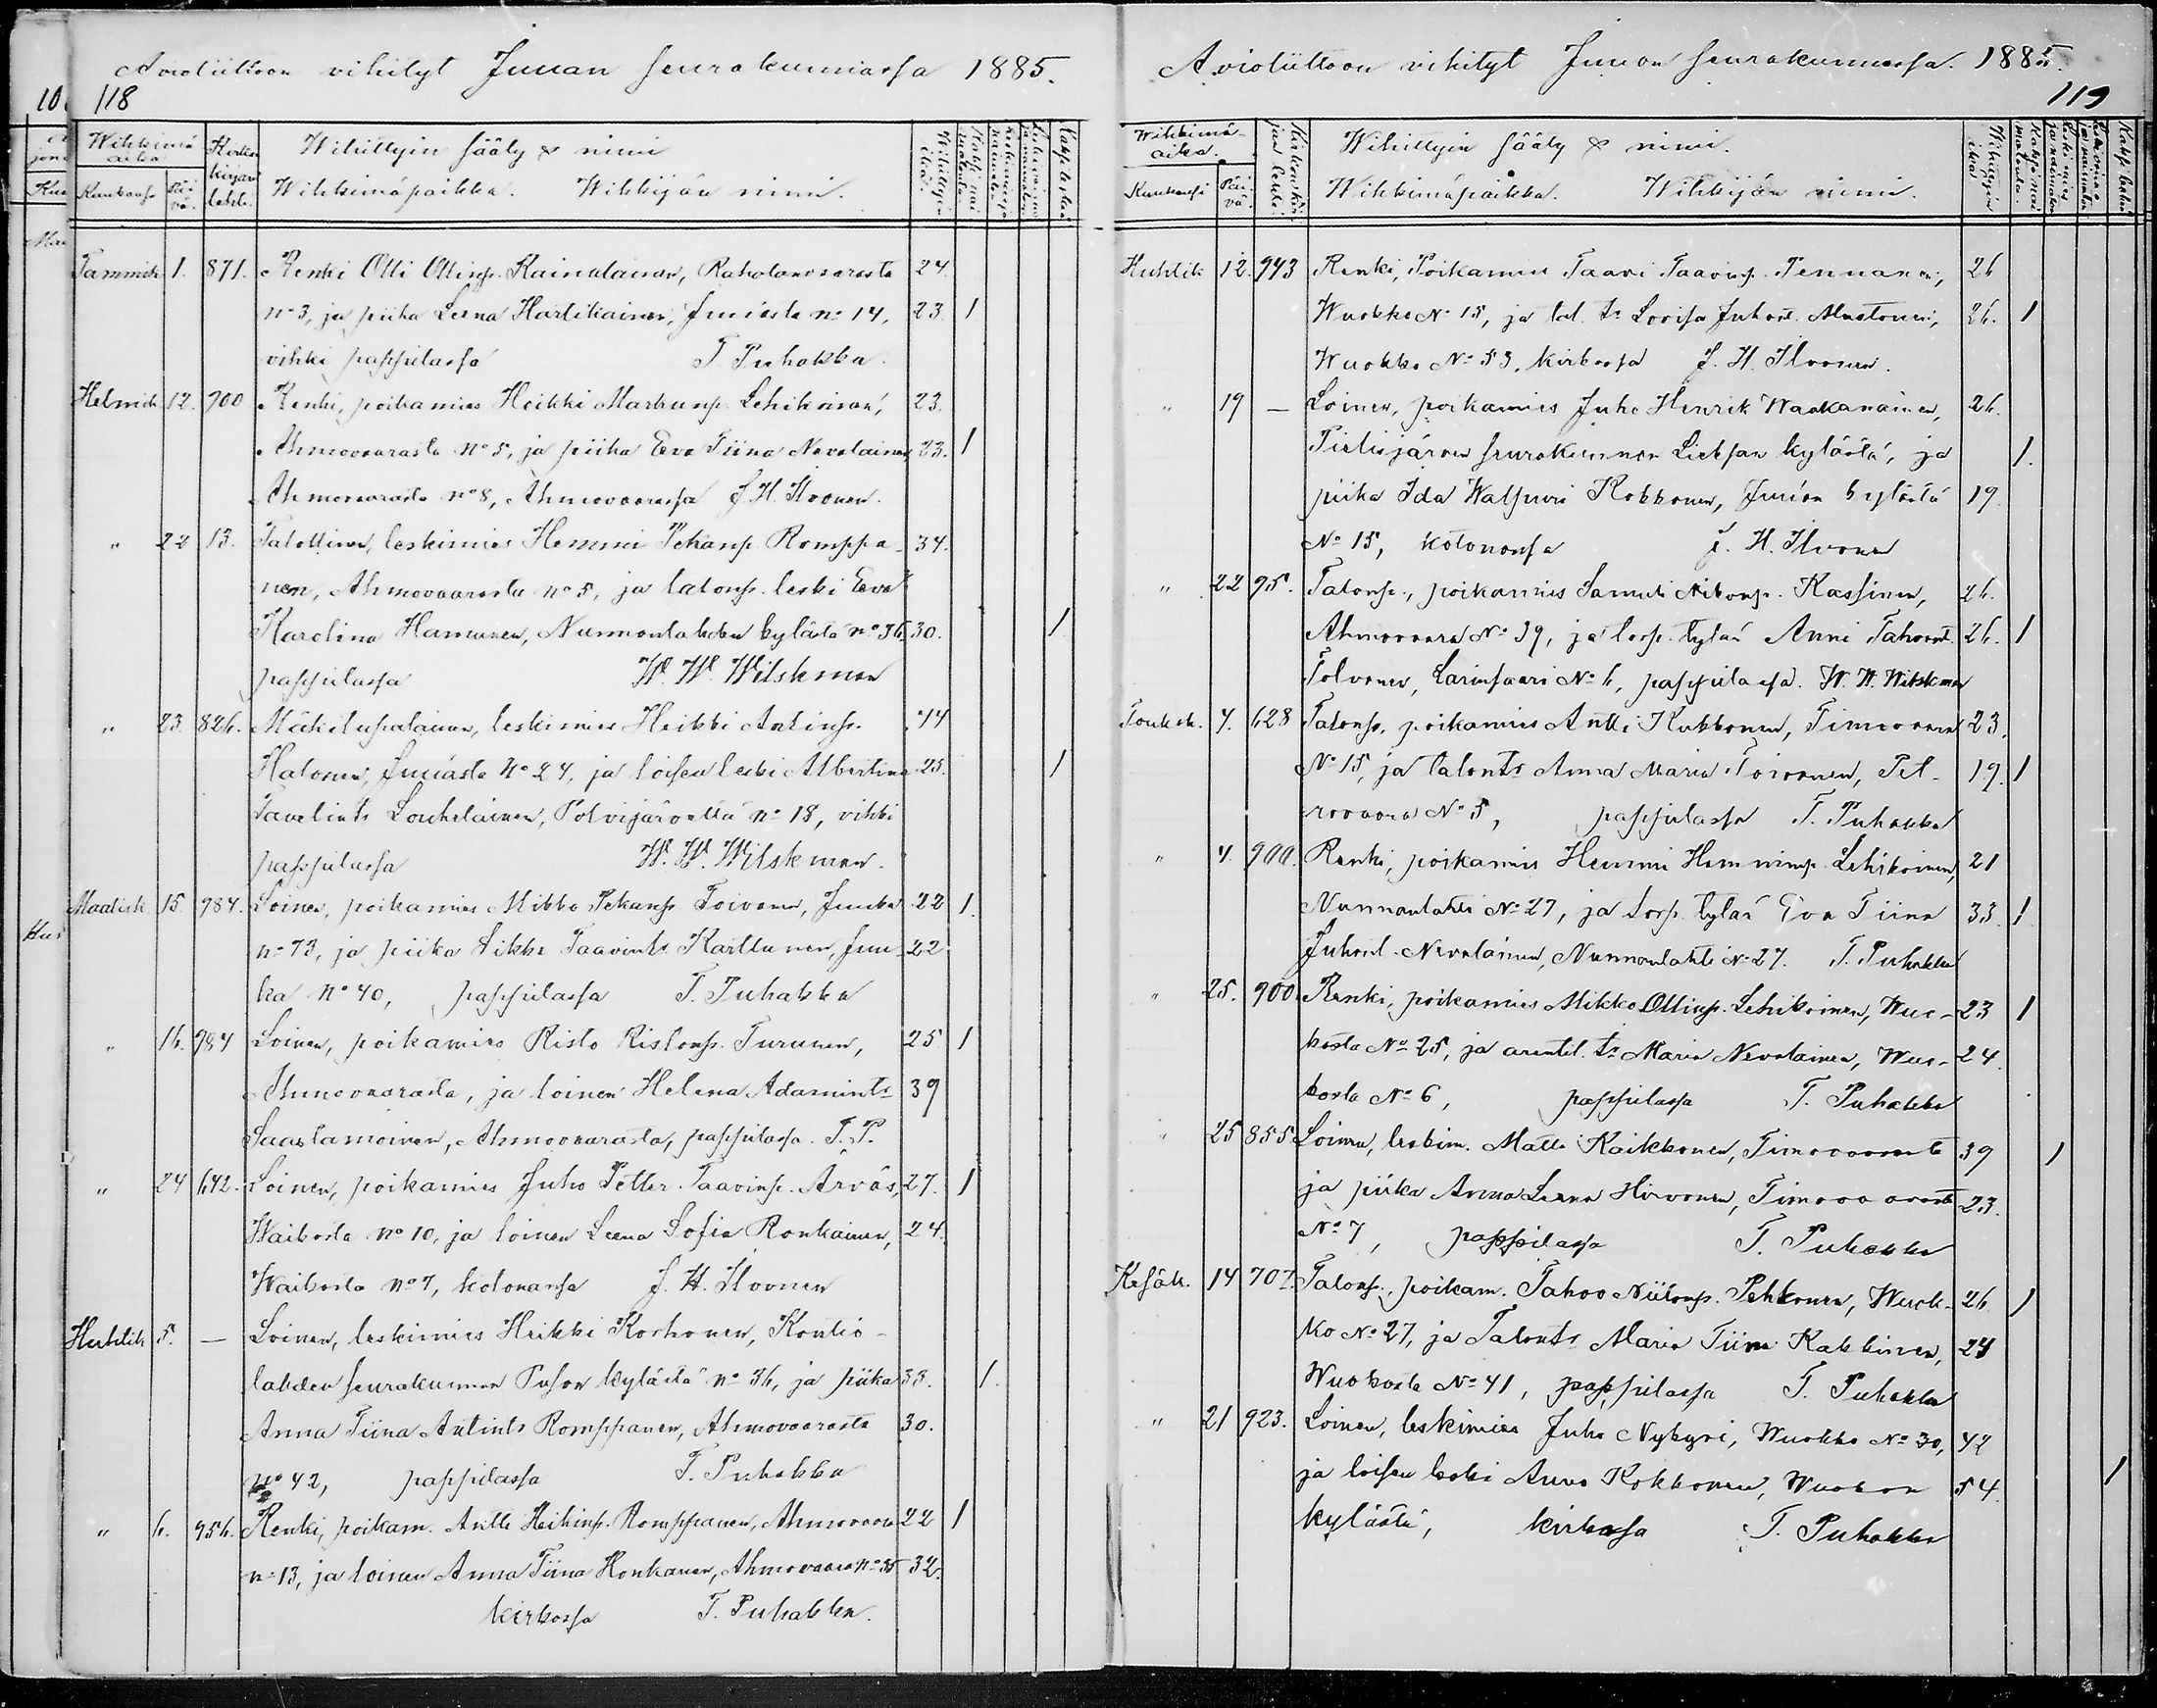 Avioliittoon vihityt Juuan seurakunnassa 1885.
118
Wihkimä aika
Kirkon kirjan lehti.
Wihittyin sääty & nimi
Kuukausi Päivä.
Wihkimäpaikka. Wihkijän nimi.
Wihittyin ikä.
Tammik. 1. 871. Renki Olli Ollinp. Kainulainen, Raholanvaarasta 24.
no 3, ja piika Leena Hartikainen, Juuasta no 14, 23. 1
vihki pappilassa T Puhakka.
Helmik. 12. 900 Renki, poikamies Heikki Markunp. Lehikoinen, 23.
Ahmovaarasta No 5, ja piika Eeva Tiina Nevalainen, 23. 1
Ahmovaarasta no 8, Ahmovaarassa J. H. Ilvonen.
" 22 13. Talollinen, leskimies Hemmi Pekanp. Romppa- 34.
nen, Ahmovaarasta no 5, ja talonp. leski Eeva
Karolina Hamunen, Nunnanlahden kylästä no 36, 30. 1
pappilassa W. W. Wilskman
" 23 826. Mäkitupalainen, leskimies Heikki Antinp. 44
Halonen, Juuasta No 24, ja loisen leski Albertina 25. 1
Taavelints Louhelainen, Polvijärveltä no 18, vihki
pappilassa W. W. Wilskman.
Maalisk. 15. 984. Loinen, poikamies Mikko Pekanp. Toivonen, Juuka 22 1.
no 73, ja piika Sikke Taavints Karttunen, Juu- 22
ka No 40, pappilassa T. Puhakka
" 16. 984 Loinen, poikamies Risto Ristonp. Turunen, 25 1
Ahmovaarasta, ja loinen Helena Adamints 39
Saastamoinen, Ahmovaarasta, pappilassa. T. P.
" 24 642. Loinen, poikamies Juho Petter Taavinp. Ärväs, 27. 1
Waikosta no 10, ja loinen Leena Sofia Ronkainen, 24.
Waikosta no 7, kotonansa J. H. Ilvonen
Huhtik. 5. — Loinen, leskimies Heikki Korhonen, Kontio-
lahden seurakunnan Puson kylästä no 36, ja piika 33. 1.
Anna Tiina Antints Romppanen, Ahmovaarasta 30.
No 42, pappilassa T. Puhakka
" 6. 956. Renki, poikam. Antti Heikinp. Romppanen, Ahmovaara 22 1
no 13, ja loinen Anna Tiina Honkanen, Ahmovaara no 35 32.
kirkossa T. Puhakka.
Avioliittoon vihityt Juuan seurakunnassa. 1885.
119
Wihkimä-aika.
Kirkonkirjan lehti.
Wihittyin sääty & nimi.
Kuukausi Päivä.
Wihkimäpaikka. Wihkijän nimi.
Wihittyin ikä
Huhtik 12. 943 Renki, Poikamies Taavi Taavinp. Tennanen, 26
Wuokko No 15, ja tal. tr Loviisa Juhont. Mustonen, 26. 1
Wuokko No 53, kirkossa J. H. Ilvonen.
" 19 — Loinen, poikamies Juho Henrik Waakanainen, 26.
Pielisjärven seurakunnan Lieksan kylästä, ja 1.
piika Ida Walpuri Kokkonen, Juuan kylästä 19.
No 15, kotonansa J. H. Ilvonen
" 22 95. Talonp., poikamies Samuli Nilonp. Kassinen, 26.
Ahmovaara No 39, ja torp. tytär Anni Tahvont. 26. 1
Tolvonen, Larinsaari No 6, pappilassa. W. W. Wilskman
Toukok. 4. 628 Talonp. poikamies Antti Kukkonen, Timovaara 23.
No 15, ja talonts Anna Maria Toivonen, Pet- 19. 1
rovaara No 5, pappilassa T. Puhakka
" 4. 900. Renki, poikamies Hemmi Hemminp. Lehikoinen, 21
Nunnanlahti No 27, ja torp. tytär Eva Tiina 33. 1
Juhont. Nevalainen, Nunnanlahti No 27. T. Puhakka
" 25. 900. Renki, poikamies Mikko Ollinp. Lehikoinen, Wuo- 23 1
kosta No 25, ja arentil. tr Maria Nevalainen, Wuo- 24.
kosta No 6, pappilassa T. Puhakka
" 25 855. Loinen, leskim. Matti Kaikkonen, Timovaarasta 39 1
ja piika Anna Leena Hirvonen, Timovaarasta 23.
No 7, pappilassa T. Puhakka
Kesäk. 14 707. Talonp., poikam. Tahvo Niilonp. Pehkonen, Wuok- 26 1
ko No 27, ja Talonts Maria Tiina Kakkinen, 24
Wuokosta No 41, pappilassa T. Puhakka
" 21 923. Loinen, leskimies Juho Nykyri, Wuokko No 30, 42
ja loisen leski Anna Kokkonen, Wuokon 54. 1
kylästä, kirkossa T. Puhakka